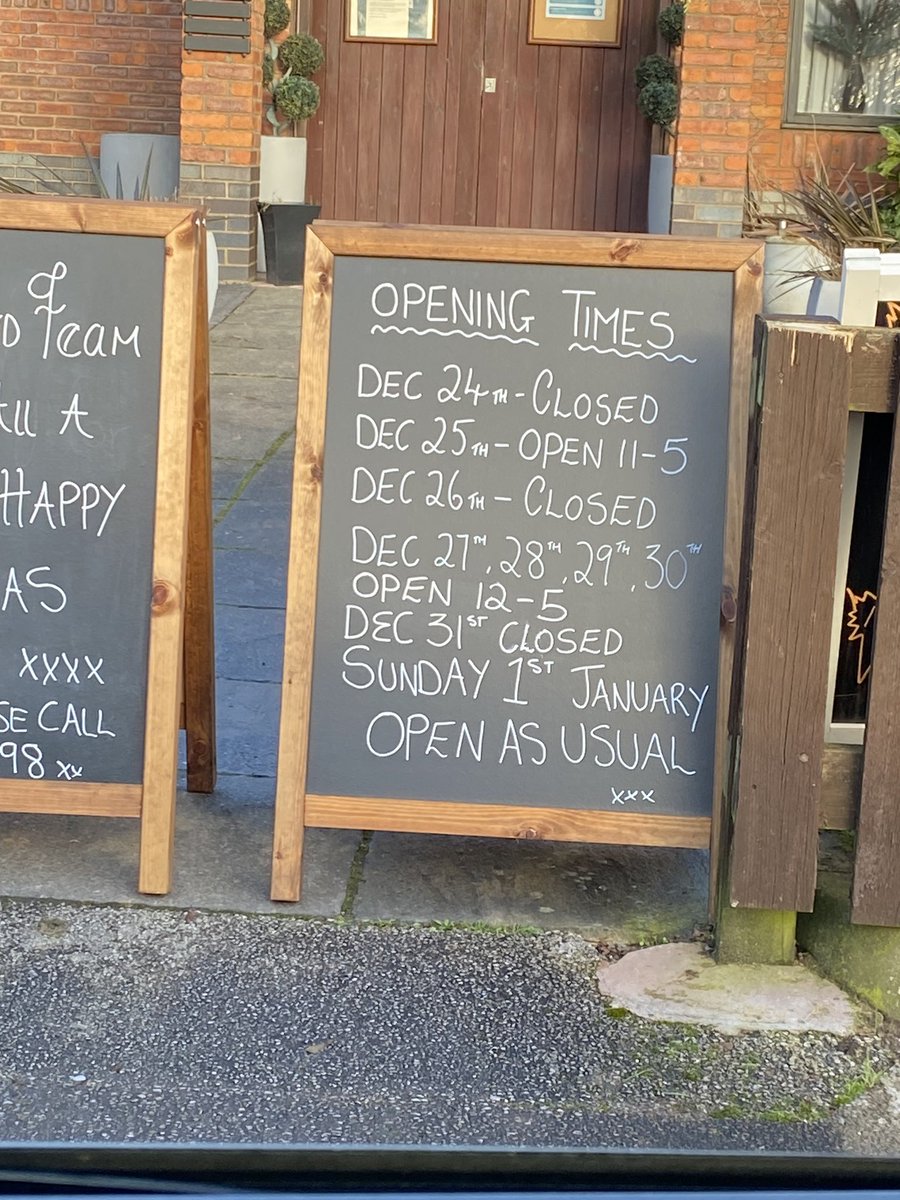 & Team
All A
HAPPY
AS
xxxx
SE CALL
98 xx
OPENING TIMES
DEC 24TH - CLOSED
DEC 25TH - OPEN 11-5
DEC 26TH - CLOSED
DEC 27TH, 28TH, 29TH, 30TH
OPEN 12-5
DEC 31ST CLOSED
SUNDAY 1ST JANUARY
OPEN AS USUAL
xxx